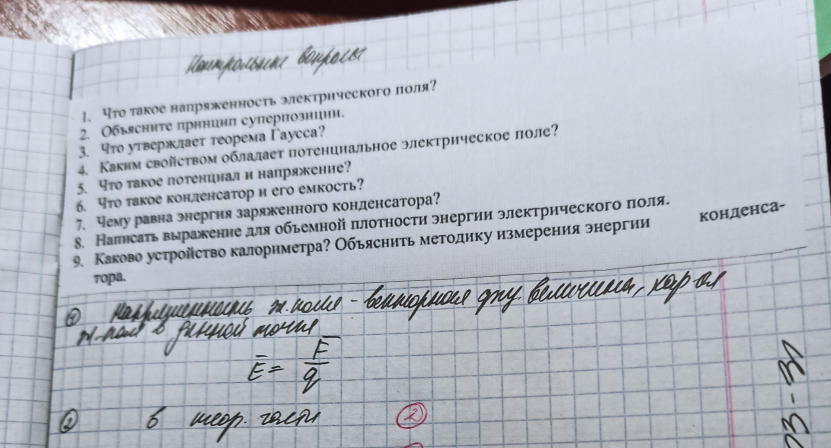 Контрольные вопросы
1. Что такое напряженность электрического поля?
2. Объясните принцип суперпозиции.
3. Что утверждает теорема Гаусса?
4. Каким свойством обладает потенциальное электрическое поле?
5. Что такое потенциал и напряжение?
6. Что такое конденсатор и его емкость?
7. Чему равна энергия заряженного конденсатора?
8. Написать выражение для объемной плотности энергии электрического поля.
9. Каково устройство калориметра? Объяснить методику измерения энергии конденса-
тора.
① Напряженность эл. поля - векторная физ. величина, хар-ая
эл. поле в данной точке
E̅ = F̅/q
② в теор. части ②